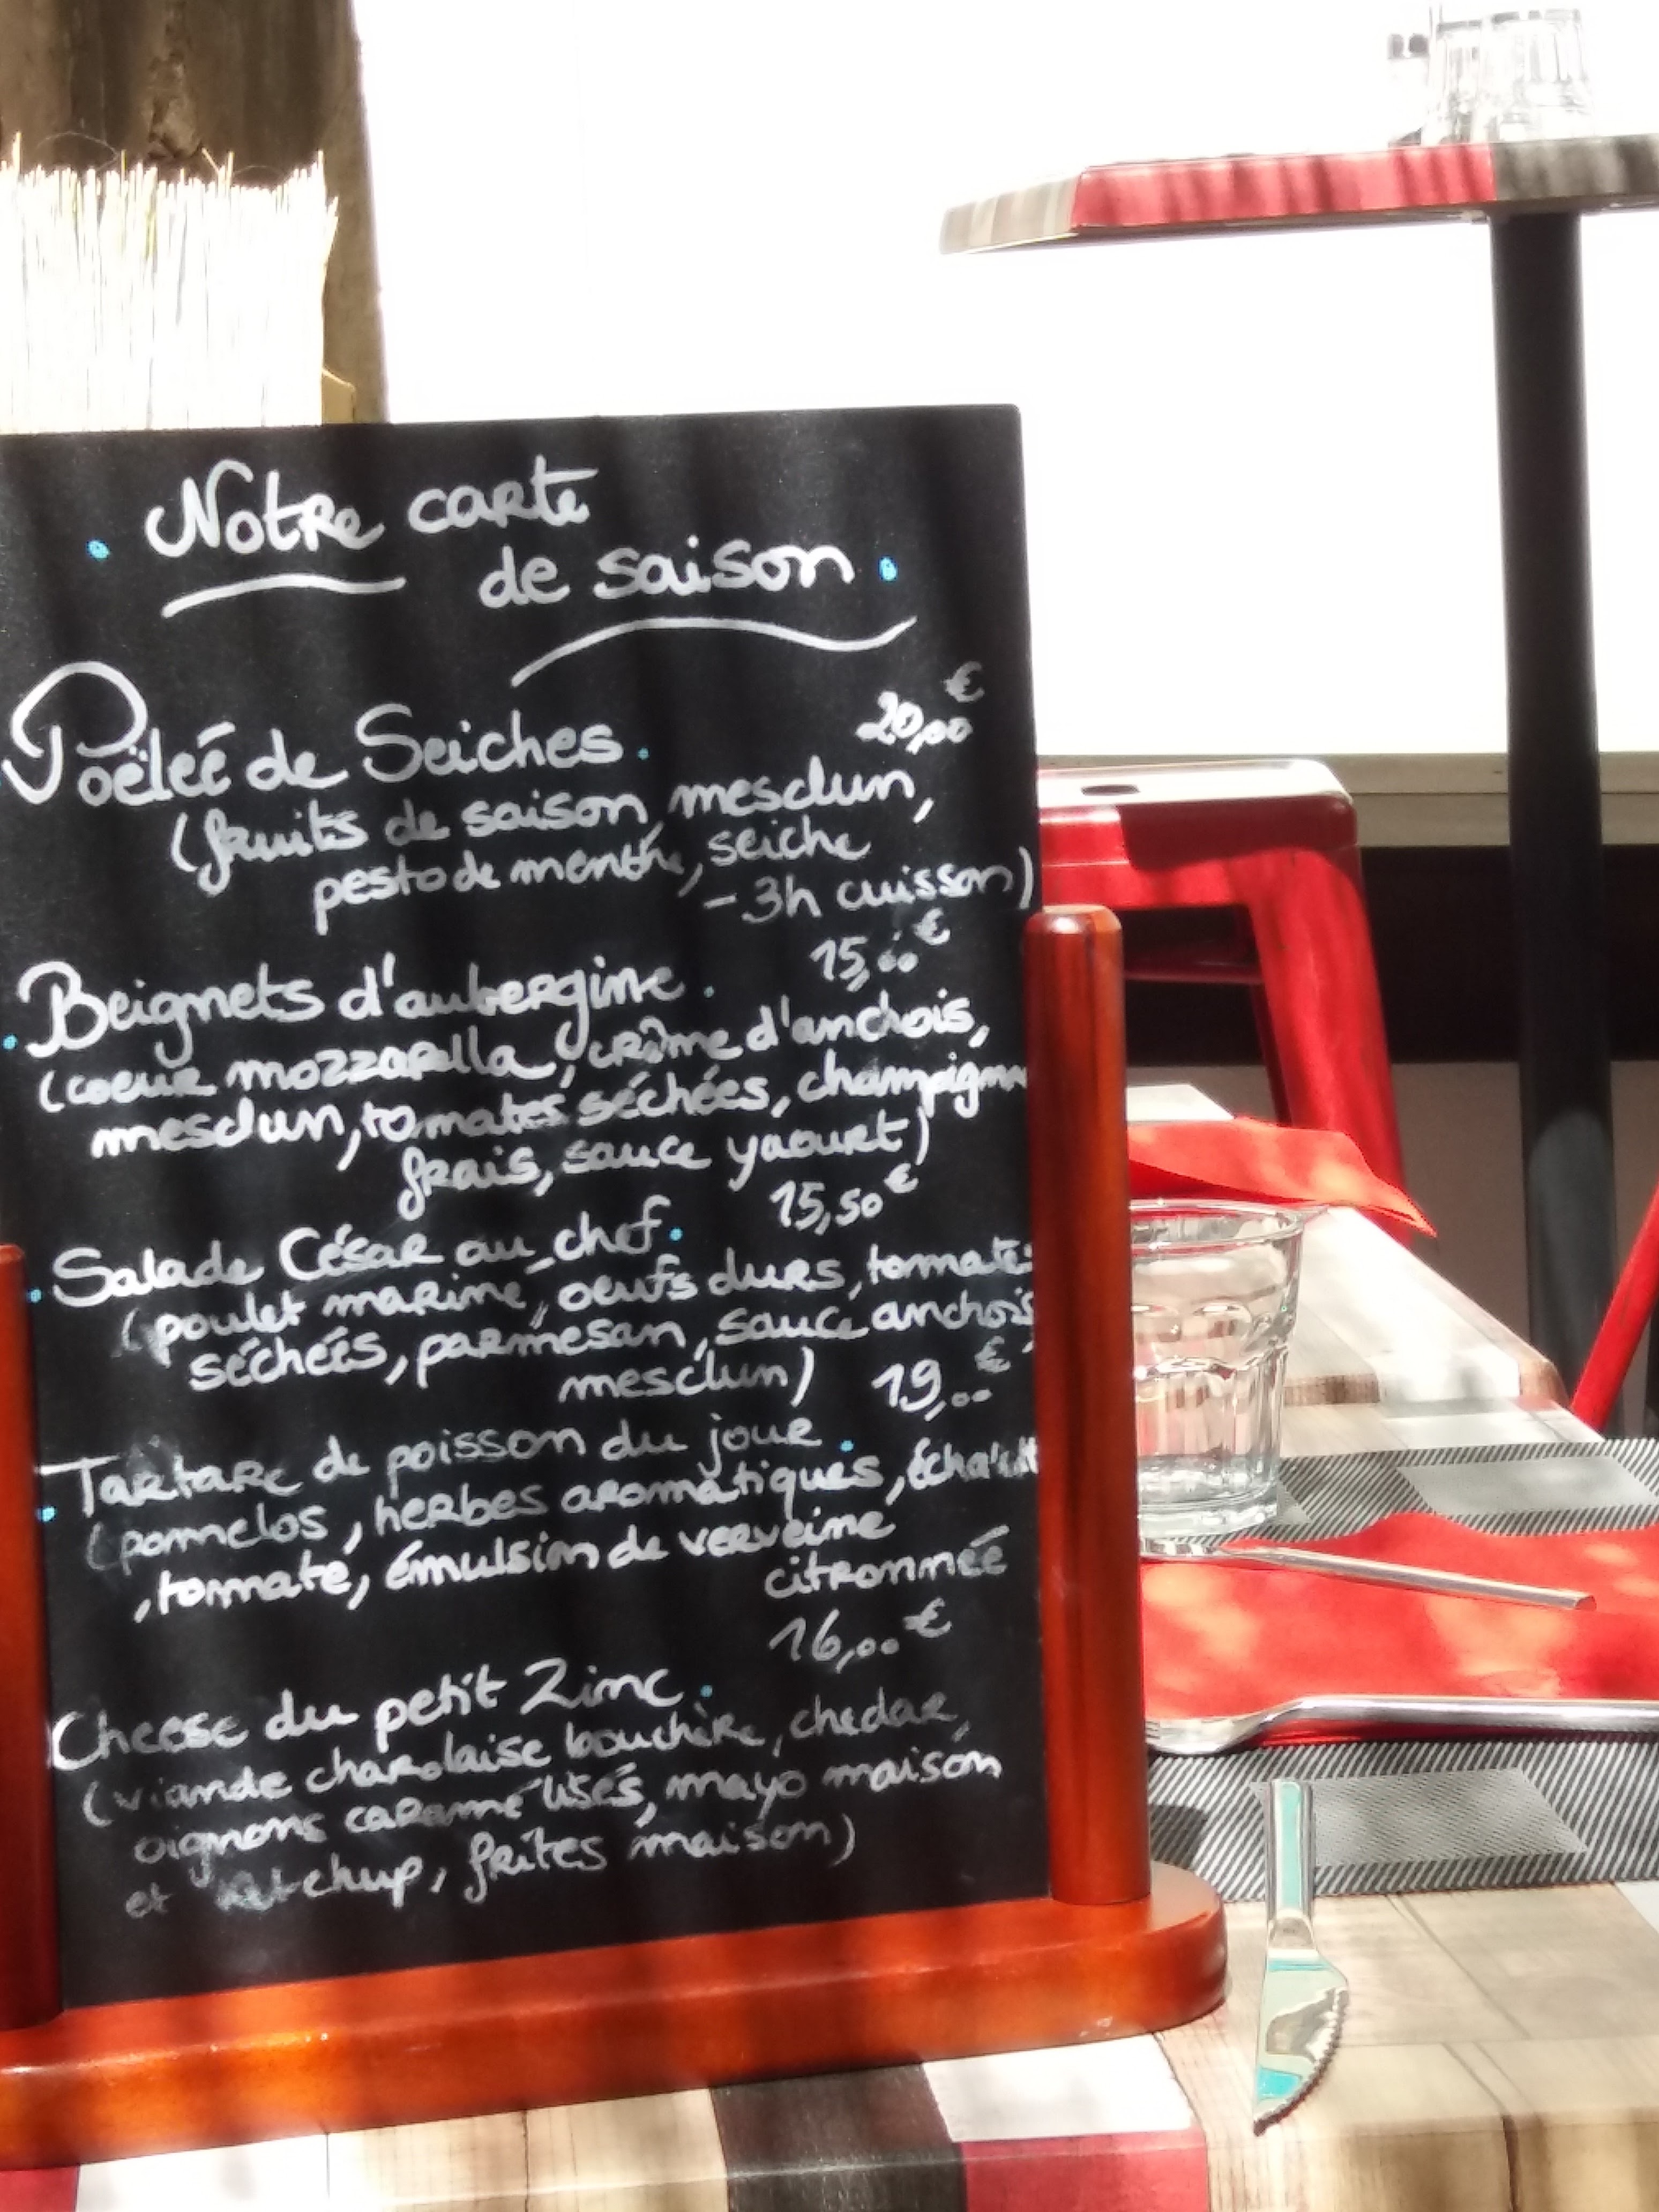 Notre carte
de saison
20,00€
Poëleé de Seiches
(fruits de saison, mesclun,
pesto de menthe, seiche
- 3h cuisson)
15,00€
Beignets d'aubergine
(coeur mozzarella, crème d'anchois,
mesclun, tomates séchées, champignon
frais, sauce yaourt)
15,50€
Salade César au chef
(poulet mariné, oeufs durs, tomates
séchées, parmesan, sauce anchois,
mesclun)
19,00€
Tartare de poisson du jour
(pomelos, herbes aromatiques,
, tomate, émulsion de verveine
citronnée
16,00€
Cheese du petit Zinc
(viande charolaise bouchère, chedar,
oignons caramélisés, mayo maison
et ketchup, frites maison)